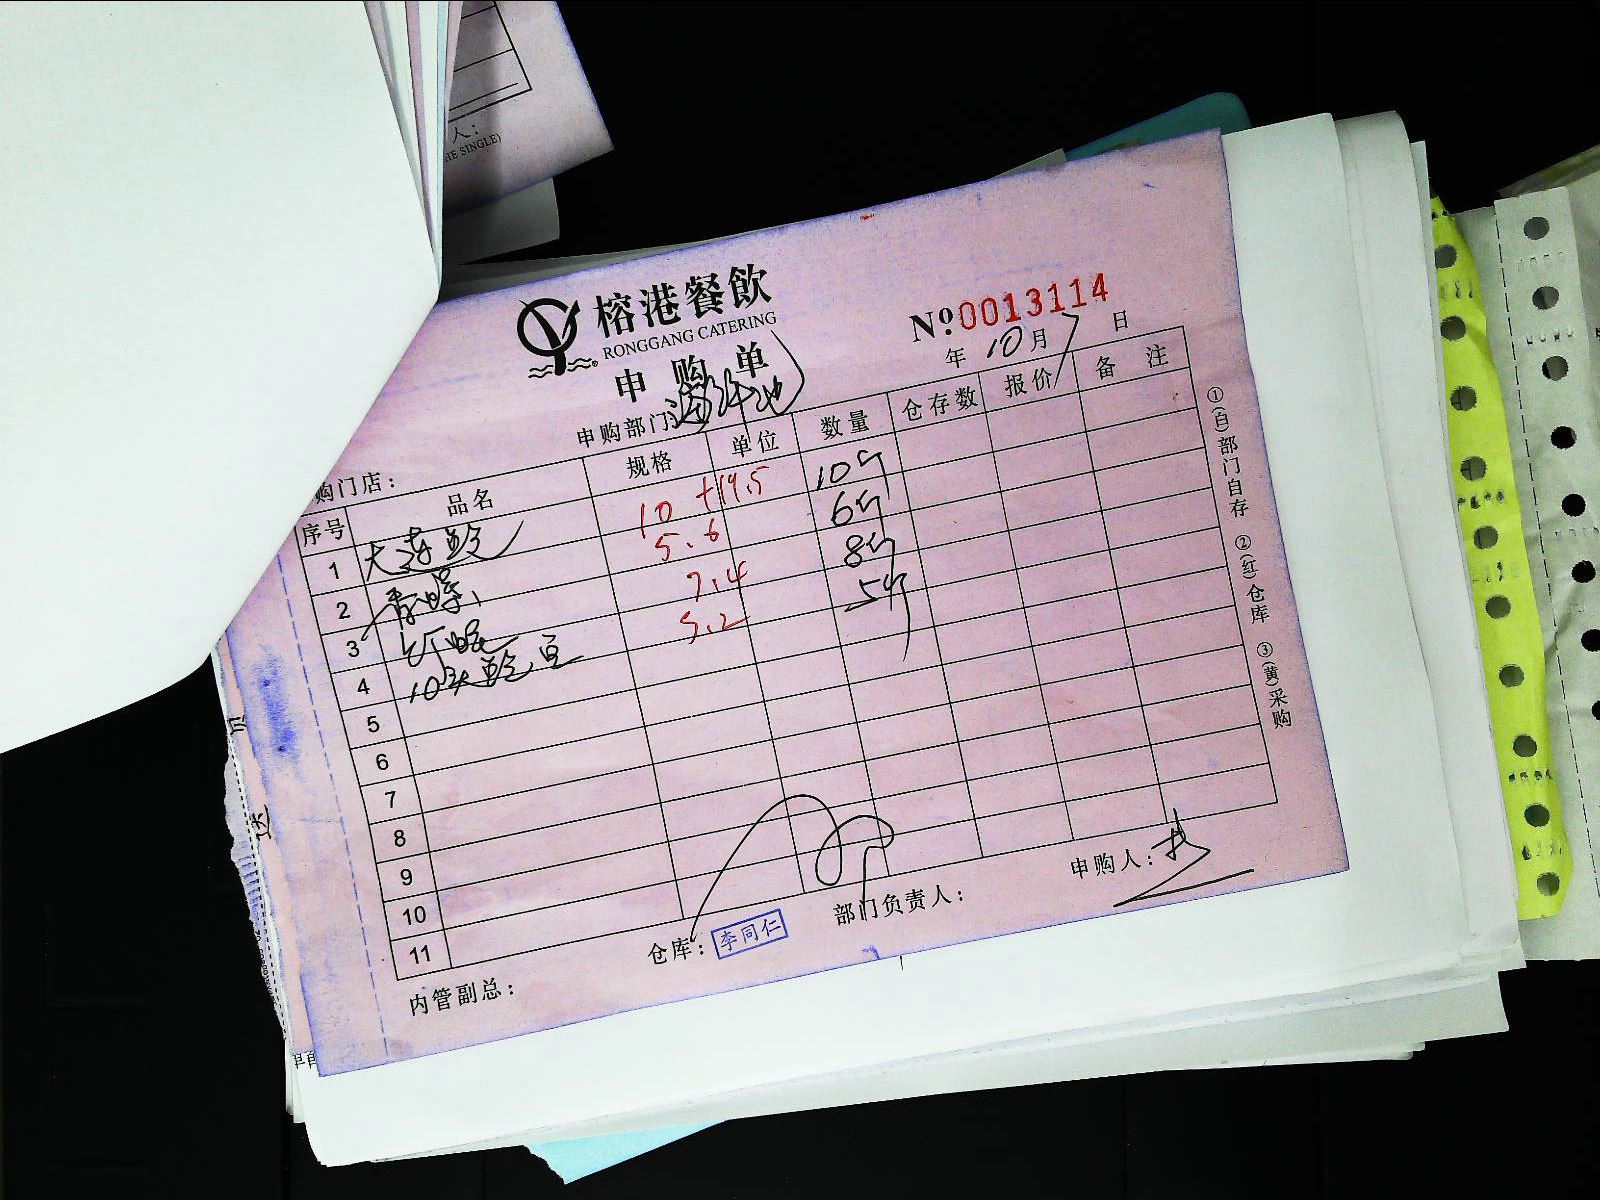 人:
HE SINGLE)
榕港餐飲
RONGGANG CATERING
申购单
№ 0013114
年 10 月 7 日
申购部门 海鲜池
购门店:
序号 品名 规格 单位 数量 仓存数 报价 备注
1 大连鲍 10 +19.5 10斤
2 青口螺 5.6 6斤
3 7.4 8斤
4 10头鲍 5.2 5斤
5
6
7
8
9
10
11
①(白)部门自存 ②(红)仓库 ③(黄)采购
内管副总:
仓库: 李同仁
部门负责人:
申购人: